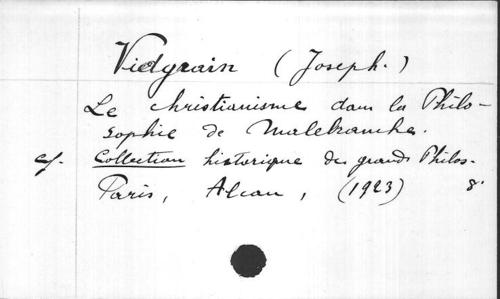 Vidgrain (Joseph.)
Le christianisme dans la Philo-
sophie de Malebranche.
cf. Collection historique des grands Philos.
Paris, Alcan, (1923) 8°